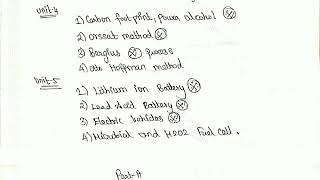 Unit-4
1) Carbon foot print, Power alcohol
2) Orssat method
3) Bergius process
4) Otto Hoffman method
Unit-5
1) Lithium ion Battery
2) Lead Acid Battery
3) Electric Vehicles
4) Microbial and H2O2 Fuel cell.
Part-A